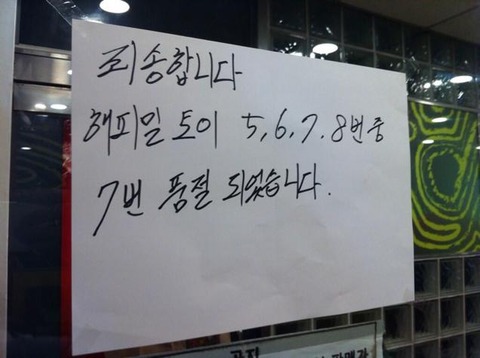 죄송합니다
해피밀 토이 5, 6, 7, 8번 중
7번 품절 되었습니다.